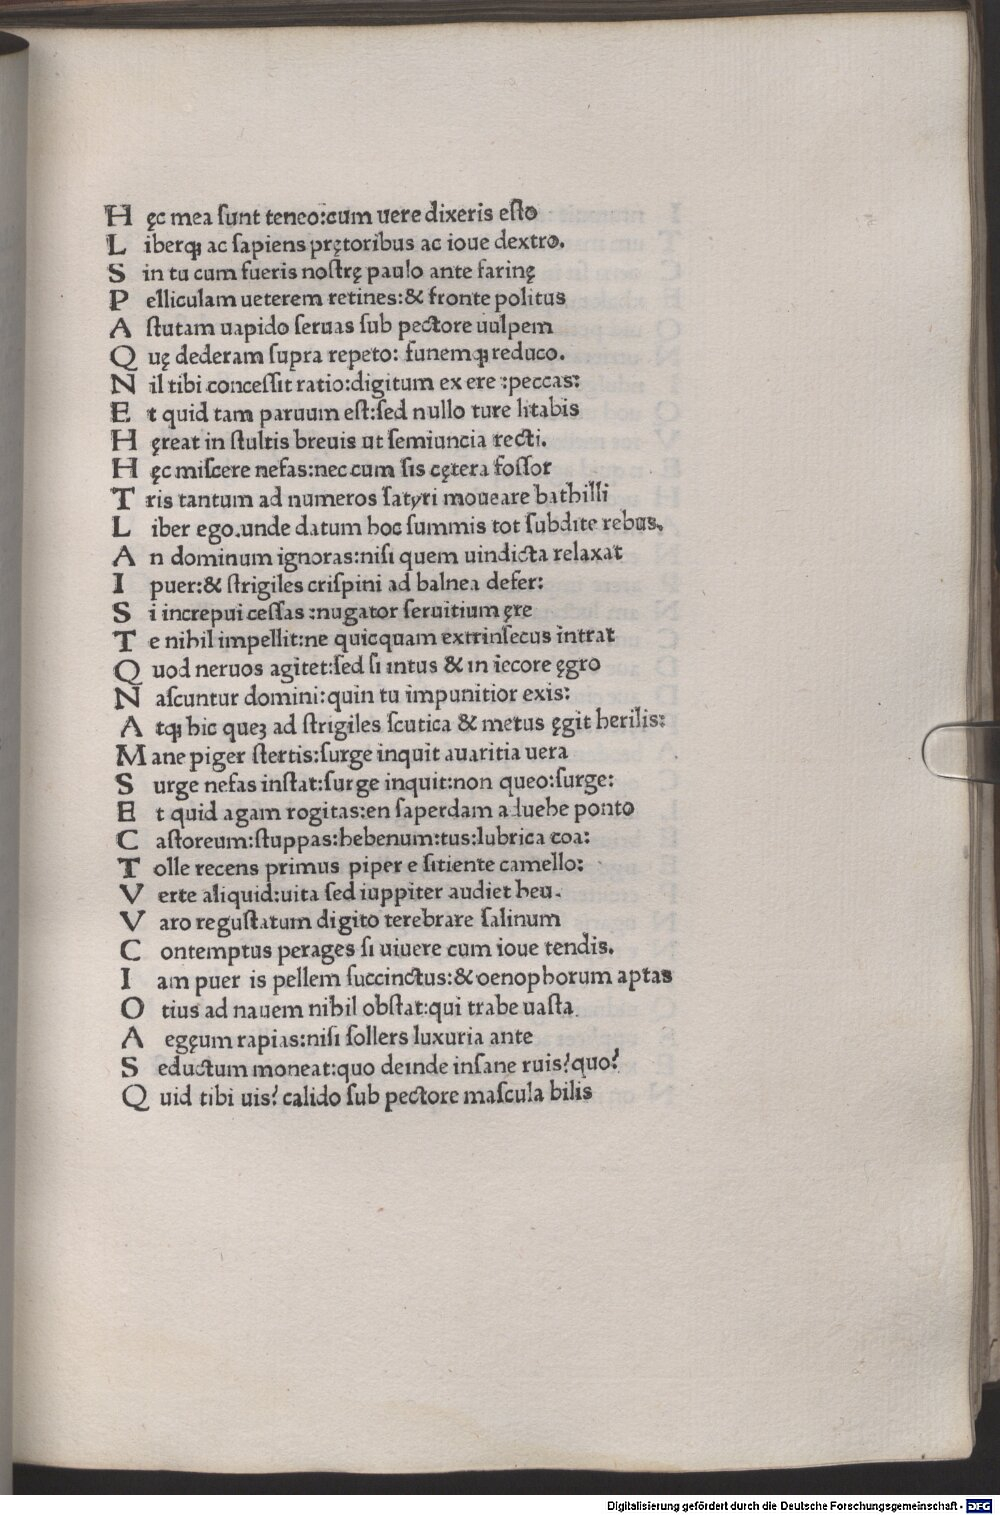 Hęc mea ſunt teneo:cum uere dixeris eſto
Liberqꝫ ac ſapiens prętoribus ac ioue dextro.
Sin tu cum fueris noſtrę paulo ante farinę
Pelliculam ueterem retines:& fronte politus
Aſtutam uapido ſeruas ſub pectore uulpem
Quę dederam ſupra repeto: funemqꝫ reduco.
Nil tibi conceſſit ratio:digitum ex ere :peccas:
Et quid tam paruum eſt:ſed nullo ture litabis
Hęreat in ſtultis breuis ut ſemiuncia recti.
Hęc miſcere nefas:nec cum ſis cętera foſſor
Tris tantum ad numeros ſatyri moueare bathilli
Liber ego.unde datum hoc ſummis tot ſubdite rebus.
An dominum ignoras:niſi quem uindicta relaxat
I puer:& ſtrigiles criſpini ad balnea defer:
Si increpui ceſſas :nugator ſeruitium ęre
Te nihil impellit:ne quicquam extrinſecus intrat
Quod neruos agitet:ſed ſi intus & in iecore ęgro
Naſcuntur domini:quin tu impunitior exis:
Atqꝫ hic queꝫ ad ſtrigiles ſcutica & metus ęgit herilis:
Mane piger ſtertis:ſurge inquit auaritia uera
Surge nefas inſtat:ſurge inquit:non queo:ſurge:
Et quid agam rogitas:en ſaperdam aduehe ponto
Caſtoreum:ſtuppas:hebenum:tus:lubrica coa:
Tolle recens primus piper e ſitiente camello:
Verte aliquid:uita ſed iuppiter audiet heu.
Varo reguſtatum digito terebrare ſalinum
Contemptus perages ſi uiuere cum ioue tendis.
Iam puer is pellem ſuccinctus:& oenophorum aptas
Otius ad nauem nihil obſtat:qui trabe uaſta
Aegęum rapias:niſi ſollers luxuria ante
Seductum moneat:quo deinde inſane ruis? quo?
Quid tibi uis? calido ſub pectore maſcula bilis
Digitalisierung gefördert durch die Deutsche Forschungsgemeinschaft - DFG